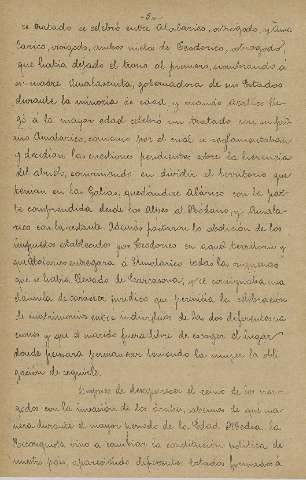 - 5 -
se tratado se celebró entre Atalarico, ostrogodo, y Ama-
larico, visigodo, ambos nietos de Teodorico, ostrogodo,
que había dejado el trono al primero, nombrando á
su madre Amalasunta, gobernadora de sus Estados
durante la minoria de edad y cuando Atalarico lle-
gó á la mayor edad celebró un tratado con su pri-
mo Amalarico, convenio por el cual se reglamentaban
y decidían las cuestiones pendientes sobre la herencia
del abuelo, conviniendo en dividir el territorio que
tenian en las Galias, quedándose Atalarico con la par-
te comprendida desde los Alpes al Ródano, y Amala-
rico con la restante. Además pactaron la abolición de los
impuestos establecidos por Teodorico en aquel territorio y
que Atalarico entregara á Amalarico todas las riquezas
que se había llevado de Carcasona, y se consignaba una
cláusula de caracter jurídico que permitía la celebración
de matrimonios entre individuos de las dos diferentes na-
ciones y que el marido fuera libre de escoger el lugar
donde pensara permanecer teniendo la mujer la obli-
gación de seguirle.
Después de desaparecer el reino de los visi-
godos con la invasión de los árabes, sabemos de que ma-
nera durante el mayor periodo de la Edad Media, la
Reconquista vino a cambiar la constitución política de
nuestro pais, apareciendo diferentes Estados formados á